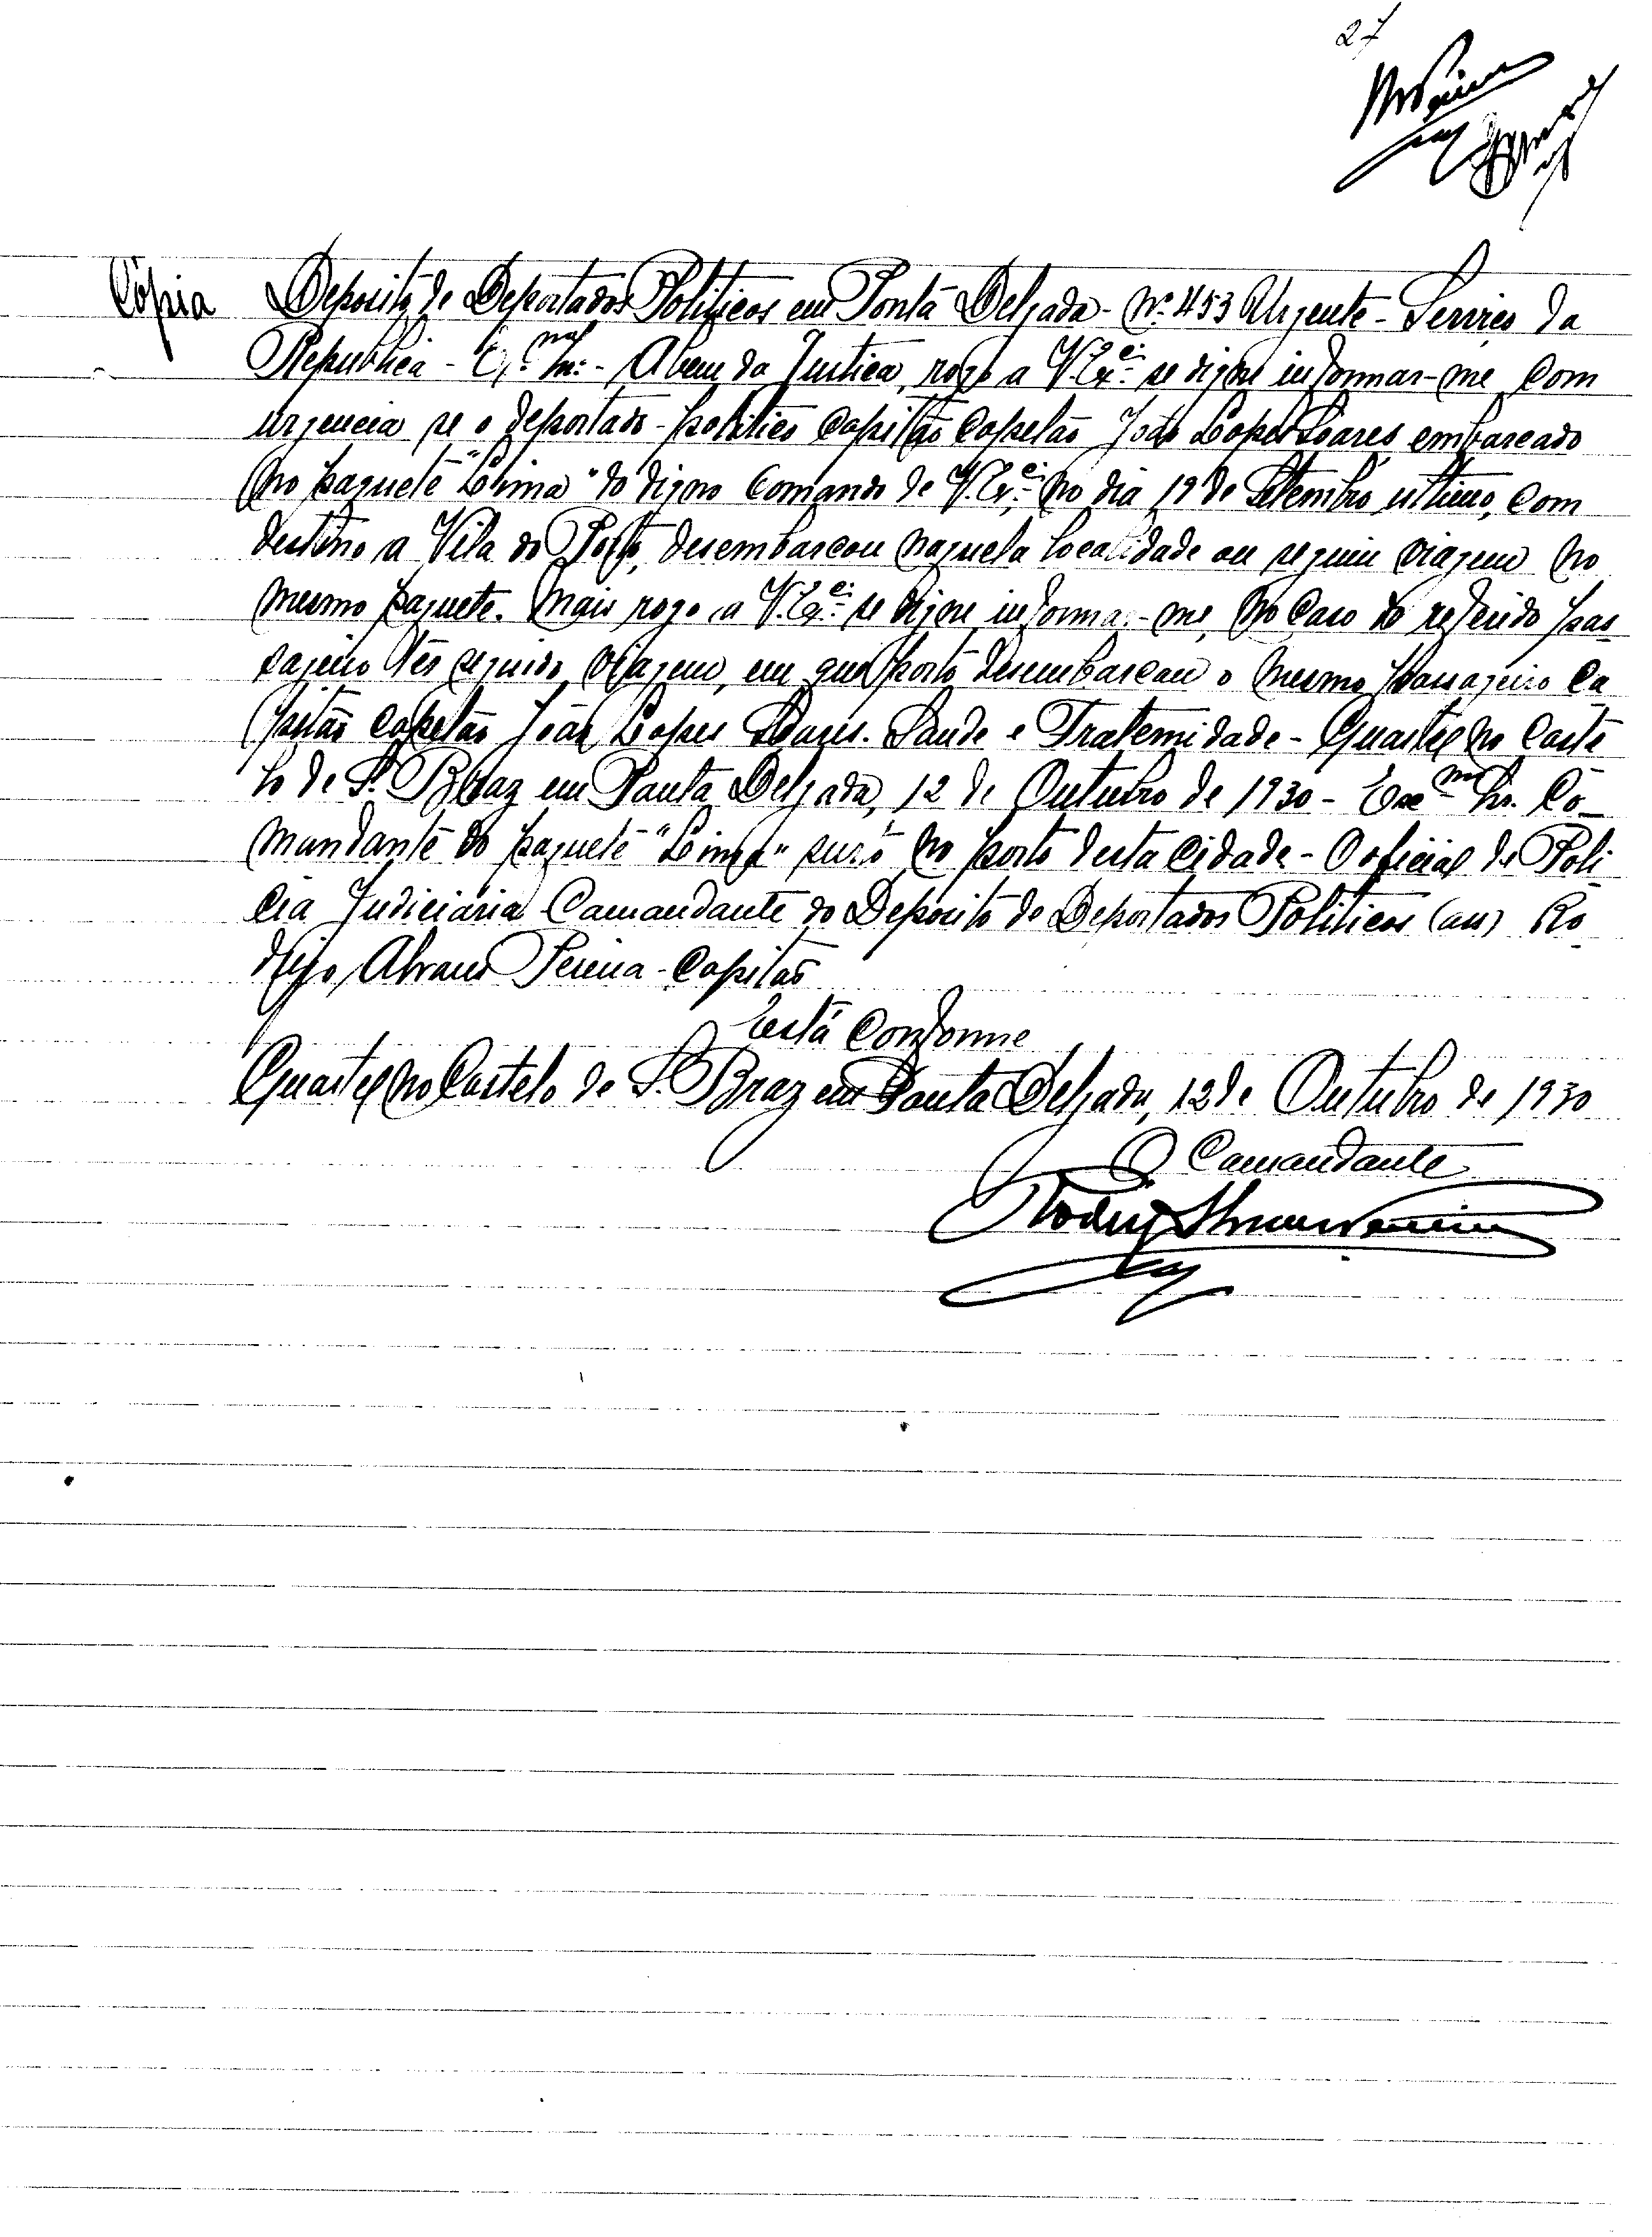 27
Cópia
Deposito de Deportados Politicos em Ponta Delgada - Nº 453 Urgente - Serviço da
Republica - Ex.mo Snr. - A bem da Justiça, rogo a V. Ex.cia se digne informar-me com
urgencia se o deportado - politico Capitão Capelão João Lopes Soares embarcado
no paquete "Lima" do digno comando de V. Ex.cia, no dia 19 de Setembro ultimo, com
destino a Vila do Porto, desembarcou naquela localidade ou seguiu viagem no
mesmo paquete. Mais rogo a V. Ex.cia se digne informar-me, no caso do referido pas-
sageiro ter seguido viagem, em que porto desembarcou o mesmo passageiro Ca
pitão Capelão João Lopes Soares. Saude e Fraternidade - Quartel no Caste
lo de S. Braz em Ponta Delgada, 12 de Outubro de 1930 - Exmo Snr. Co-
mandante do paquete "Lima" surto no porto desta cidade - O oficial de Poli
cia Judiciária Comandante do Deposito de Deportados Politicos (as) Ro
drigo Alvares Pereira - Capitão
Está Conforme
Quartel no Castelo de S. Braz em Ponta Delgada, 12 de Outubro de 1930
O Comandante
Rodrigo Alvares Pereira
Cap